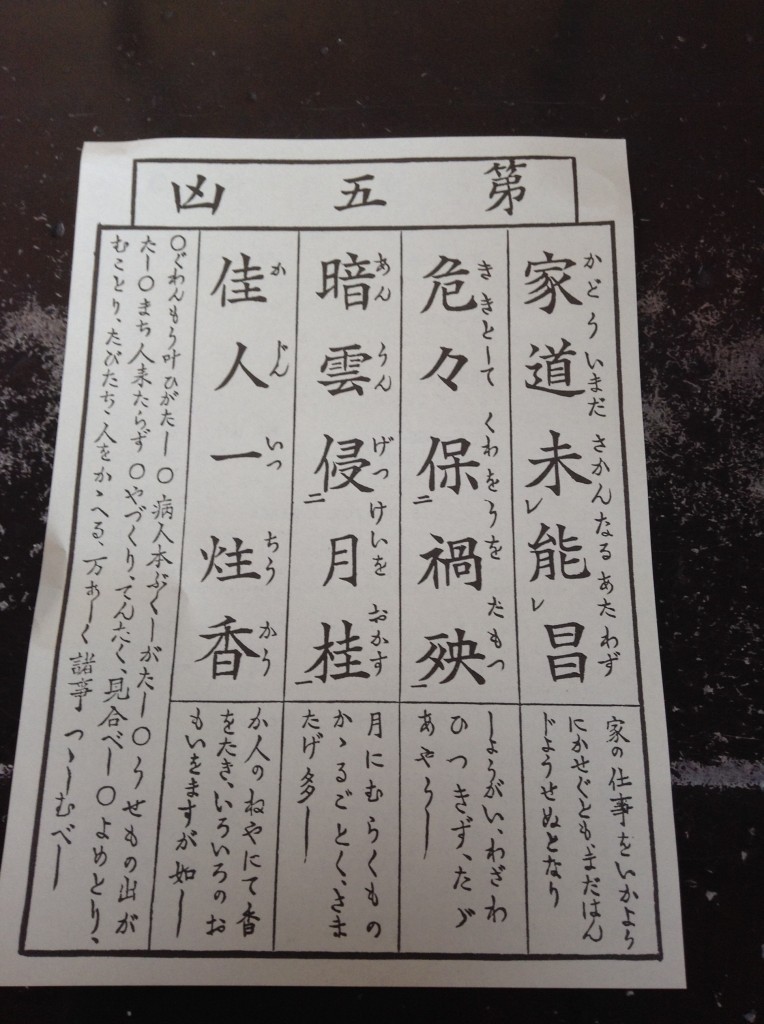 第五凶
家道未能昌
かどういまださかんなるあたわず
家の仕事をいかよう
にかせぐとも、まだはん
じようせぬとなり
危々保禍殃
ききとしてくわをうをたもつ
しようがい、わざわ
ひつきず、たゞ
あやうし
暗雲侵月桂
あんうんげつけいをおかす
月にむらくもの
かゝるごとく、さま
たげ多し
佳人一炷香
かじんいつちうかう
か人のねやにて香
をたき、いろいろのお
もいをますが如し
〇ぐわんもう叶ひがたし〇病人本ぶくしがたし〇うせもの出が
たし〇まち人来たらず〇やづくり、てん宅、見合べし〇よめとり、
むことり、たびたち、人をかゝへる、万あしく諸事つゝしむべし